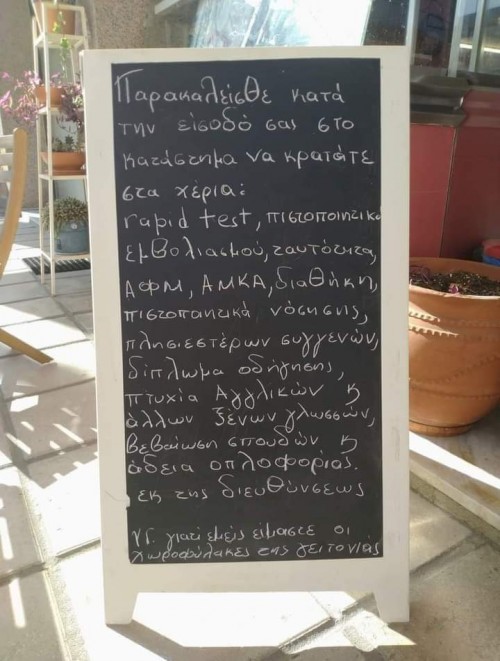 Παρακαλείσθε κατά
την είσοδό σας στο
κατάστημα να κρατάτε
στα χέρια:
rapid test, πιστοποιητικό
εμβολιασμού, ταυτότητα,
ΑΦΜ, ΑΜΚΑ, διαθήκη,
πιστοποιητικά νόσησης,
πλησιεστέρων συγγενών,
δίπλωμα οδήγησης,
πτυχία Αγγλικών &
άλλων ξένων γλωσσών,
βεβαίωση σπουδών &
άδεια οπλοφορίας.
εκ της διευθύνσεως
Υ.Γ. γιατί εμείς είμαστε οι
χωροφύλακες της γειτονιάς